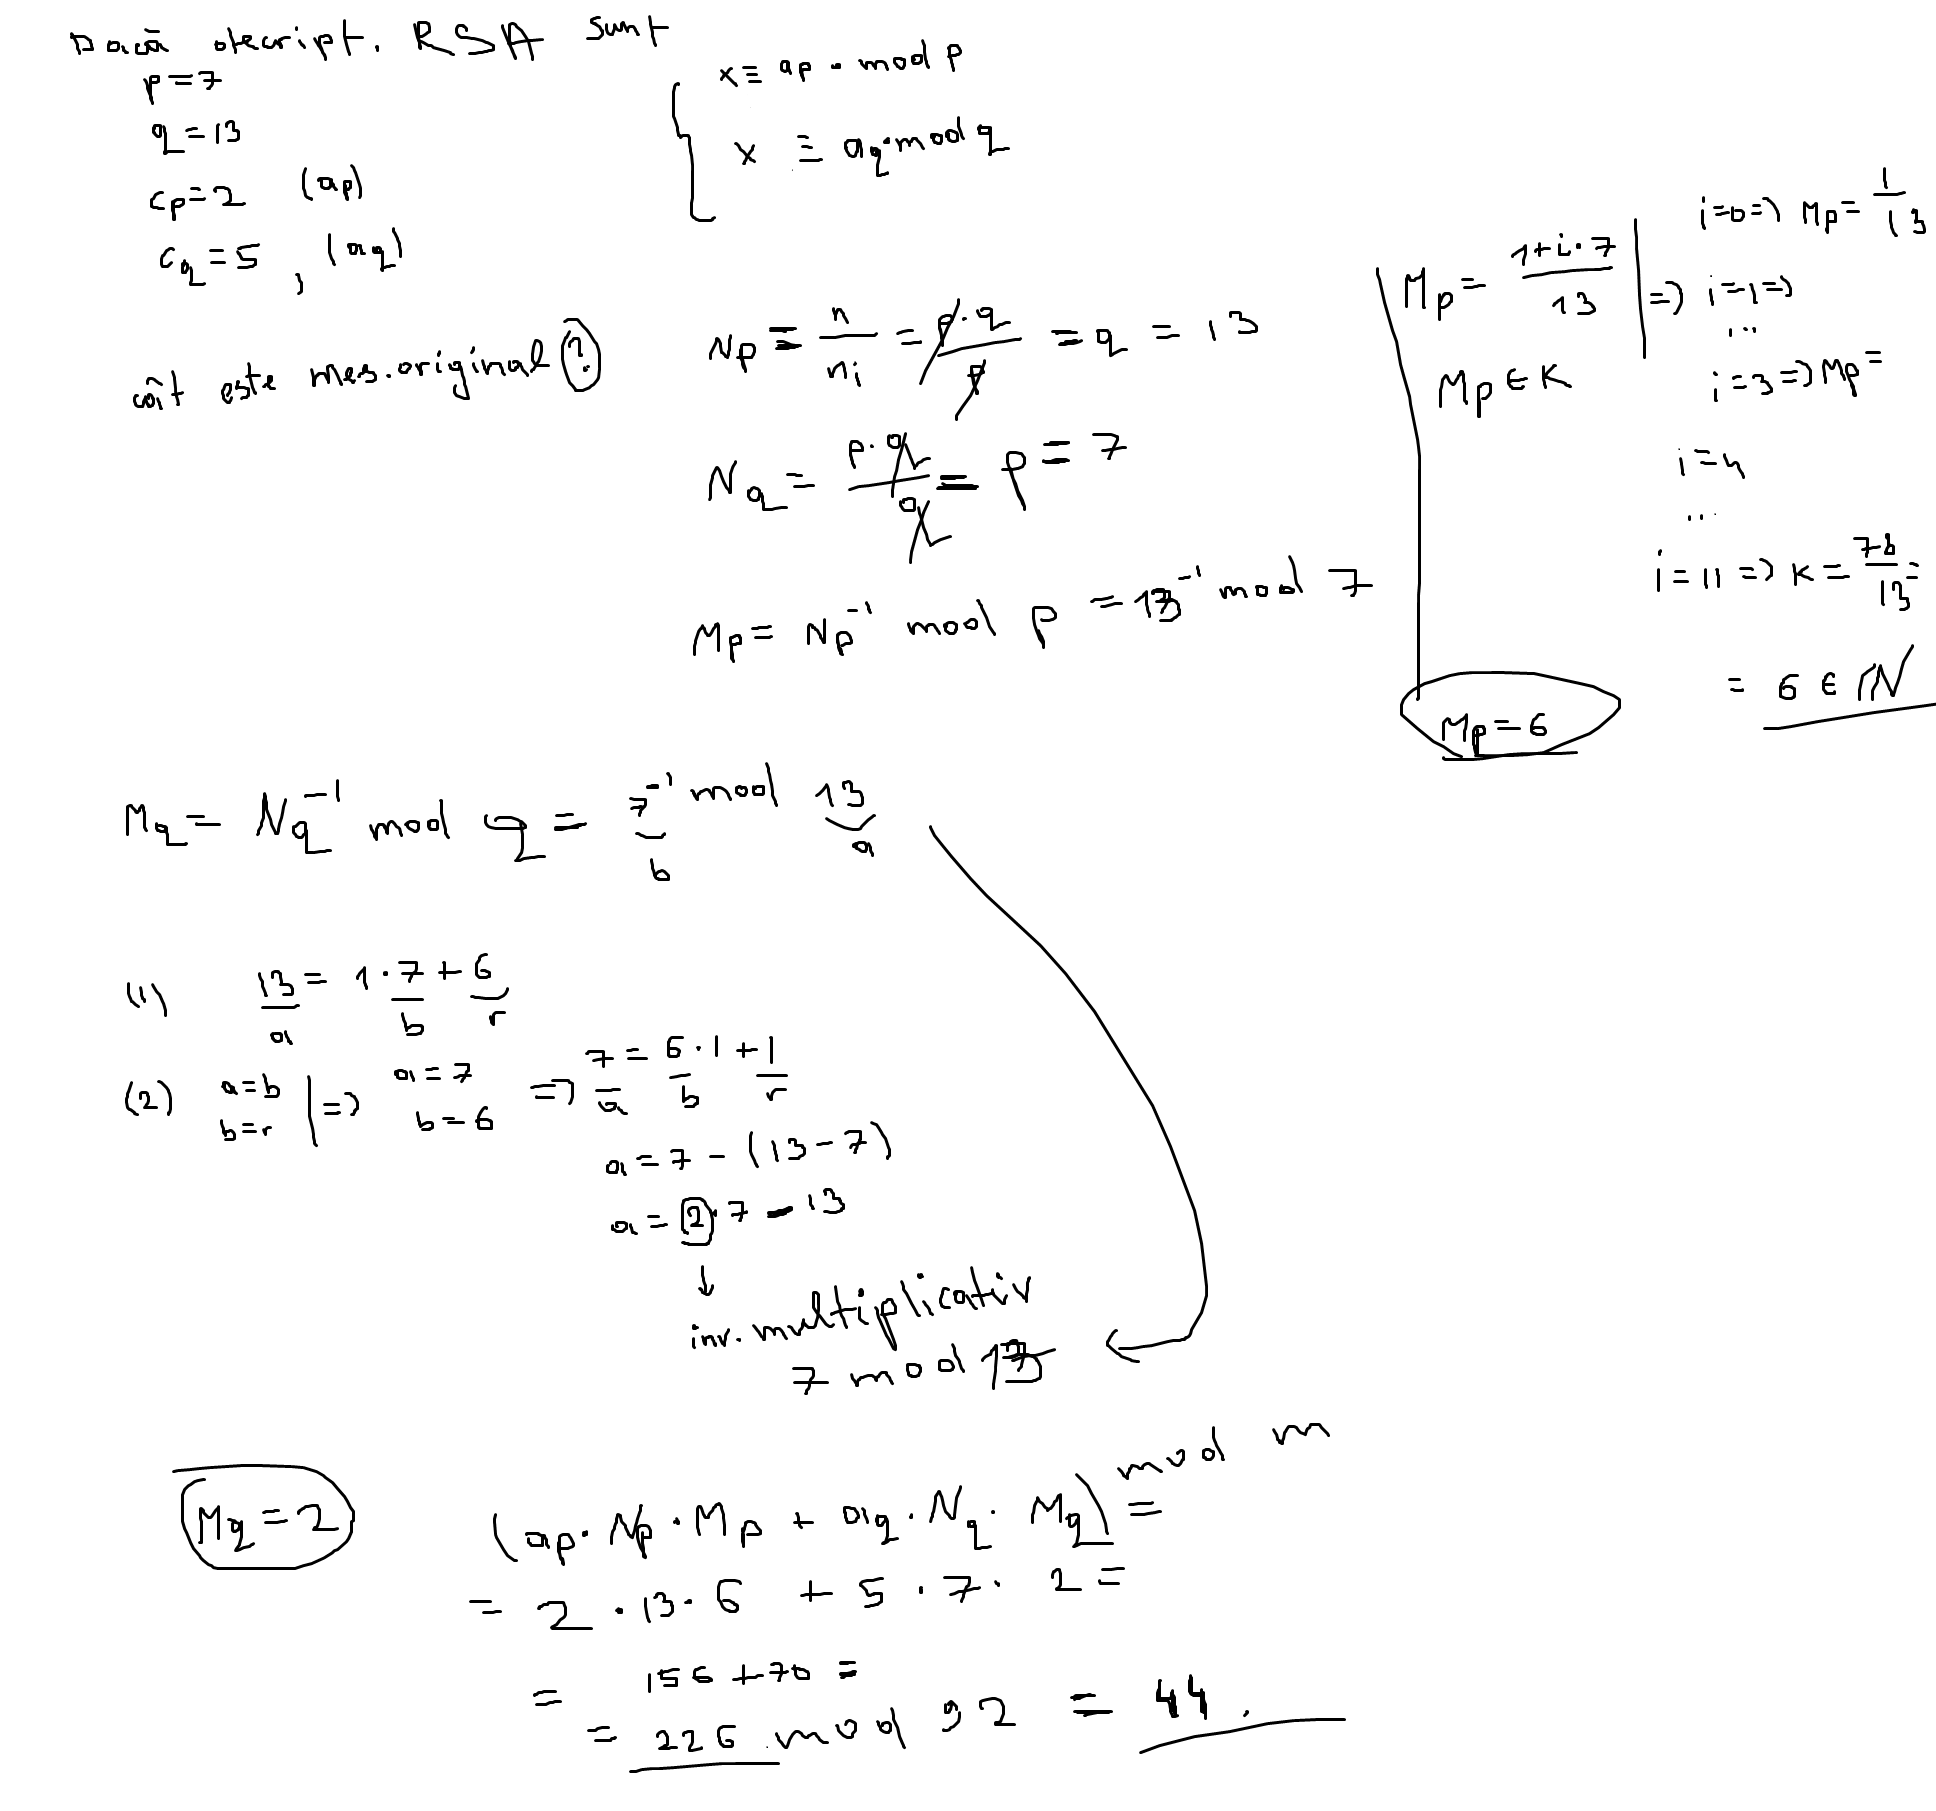 Dacă decript. RSA sunt
p=7
q=13
cp=2 (ap)
cq=5 , (aq)
cât este mes. original ?
x ≡ ap · mod p
x ≡ aq · mod q
Np = n/ni = p·q/p = q = 13
Nq = p·q/q = p = 7
Mp = Np^-1 mod p = 13^-1 mod 7
Mp = (1+i·7)/13 | =>
Mp ∈ K
i=0 => Mp = 1/13
i=1 =>
...
i=3 => Mp =
i=4
...
i=11 => K = 78/13 =
= 6 ∈ ℕ
Mp=6
Mq = Nq^-1 mod q = 7^-1 mod 13
b a
(1) 13 = 1·7 + 6
a b r
(2) a=b b=r | => a=7 b=6 => 7 = 6·1 + 1
a b r
a = 7 - (13-7)
a = 2·7 - 13
↓
inv. multiplicativ
7 mod 13
Mq=2
(ap · Np · Mp + aq · Nq · Mq) mod m =
= 2 · 13 · 6 + 5 · 7 · 2 =
= 156 + 70 =
= 226 mod 92 = 44.